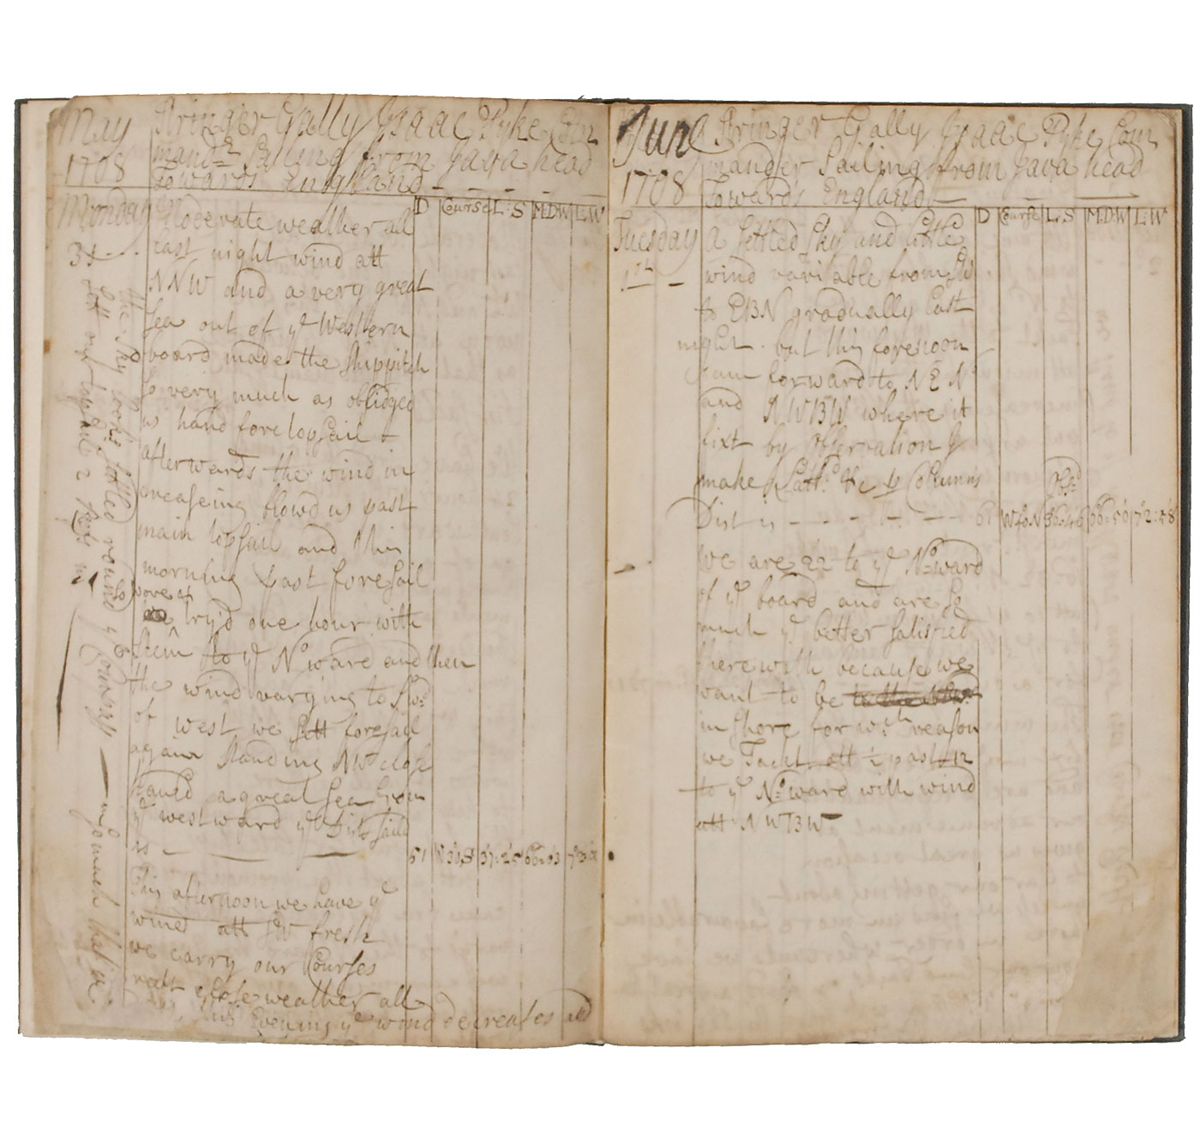 May Stringer Gally Isaac Pyke Com
1708 mandr Sailing from Java head
Towards England
Monday Moderate weather all D Course L:S M:D:W L:W
31 last night wind att
NNW and a very great
Sea out of ye Western
board made the Ship pitch
so very much as obliged
us hand foretopsail &
afterwards the wind in
creaseing blowd us past
main topsail and this
morning past foresail
wore &
tryd one hour with
Stem to ye No ward and then
the wind varying to Swd
of west we sett foresail
again standing NW close
hauld a great Sea from
ye westward ye Dist saild
is 51
This afternoon we have ye
wind att SW fresh
we carry our Courses
close weather all
this Evening ye wind decreases and
the sky
sett our topsails
in so much that in
June Stringer Gally Isaac Pyke Com
1708 mander Sailing from Java head
Towards England
Tuesday a Settled Sky and little D Course L:S M:D:W L:W
1th wind variable from
to EBN gradually last
night but this forenoon
came forward to N E N
and NWBW where it
fixt by observation I
make Lattd &c Columns
Dist is 61
we are 22 to ye Noward
of ye board and are so
much ye better satisfied
therewith because we
want to be
in shore for wch reason
we Tackt att ½ past 12
to ye Noward with wind
att NWBW